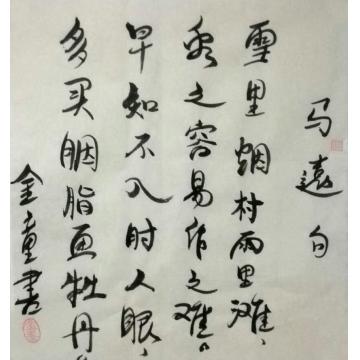 马遠句
雪里烟村雨里滩，
看之容易作之难。
早知不入时人眼，
多买胭脂画牡丹
金童書